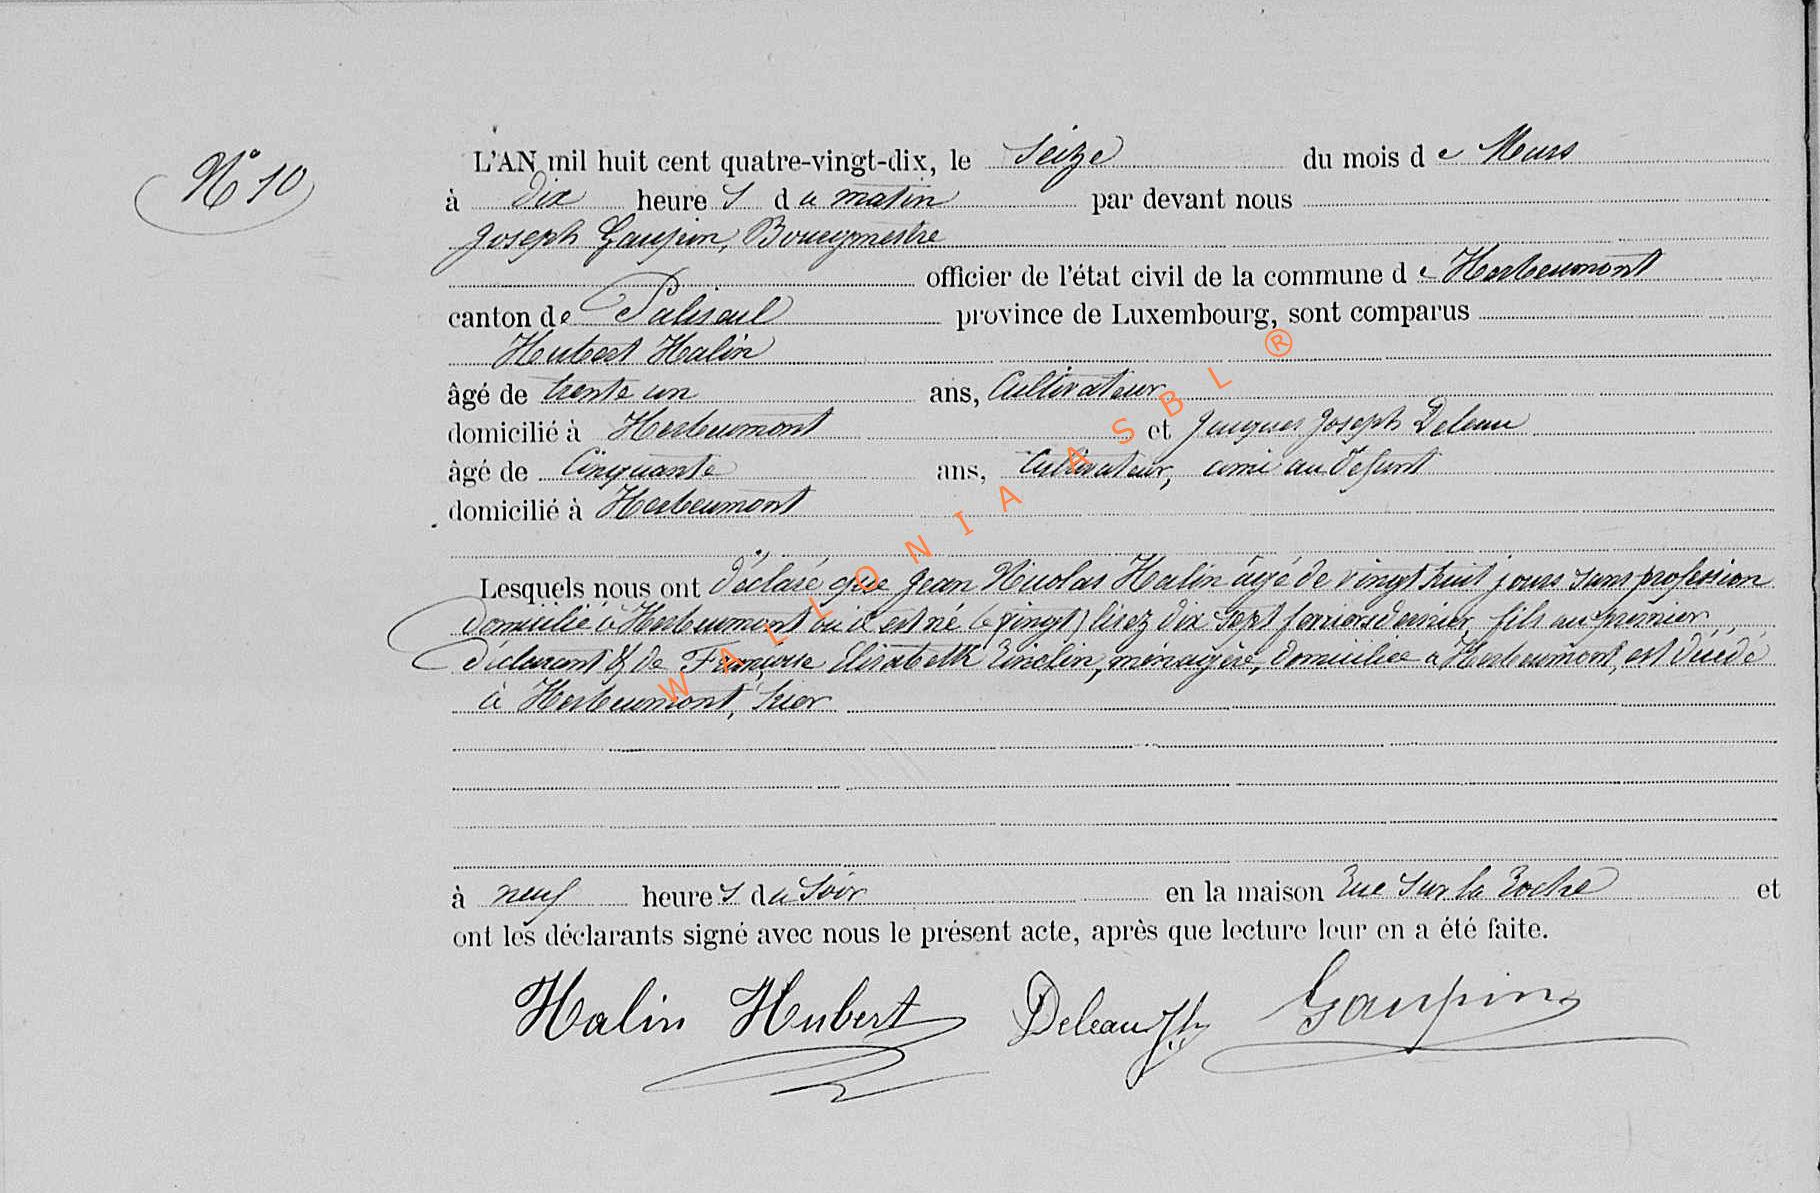 N° 10
L'AN mil huit cent quatre-vingt-dix, le Seize du mois de Mars
à dix heures du matin par devant nous
Joseph Gaupin, Bourgmestre
officier de l'état civil de la commune de Herbeumont
canton de Paliseul province de Luxembourg, sont comparus
Hubert Halin
âgé de trente un ans, Cultivateur
domicilié à Herbeumont et Jacques Joseph Deleau
âgé de Cinquante ans, Cultivateur, ami au défunt
domicilié à Herbeumont
Lesquels nous ont déclaré que Jean Nicolas Halin âgé de vingt huit jours sans profession
domicilié à Herbeumont où il est né le (vingt) lisez dix sept dernier, fils au premier
déclarant & de Françoise Elisabeth ménagère, domiciliée à Herbeumont, est décédé
à Herbeumont, hier
à neuf heures du Soir en la maison rue Sur la Roche et
ont les déclarants signé avec nous le présent acte, après que lecture leur en a été faite.
Halin Hubert Deleau JJh Gaupin
WALLONIA ASBL ®